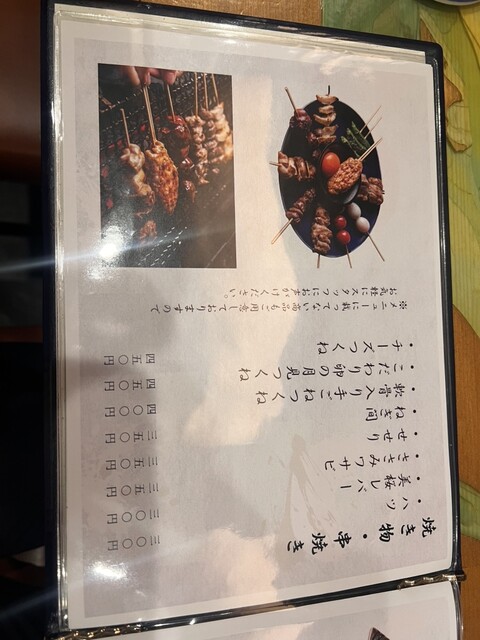 焼き物・串焼き
・ハツ 三〇〇円
・美桜レバー 三〇〇円
・ささみワサビ 三五〇円
・せせり 三五〇円
・ねぎ間 三五〇円
・軟骨入り手ごねつくね 四〇〇円
・こだわり卵の月見つくね 四五〇円
・チーズつくね 四五〇円
※メニューに載ってない商品もご用意しておりますので
お気軽にスタッフにお声がけください。